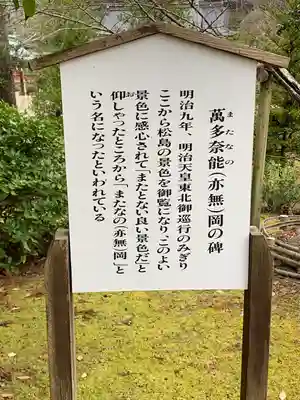 萬多奈能(亦無)岡の碑
またなの
明治九年、明治天皇東北御巡行のみぎり
ここから松島の景色を御覧になり、このよい
景色に感心されて「またとない良い景色だ」と
仰しゃつたところから「またなの(亦無)岡」と
お
いう名になったといわれている